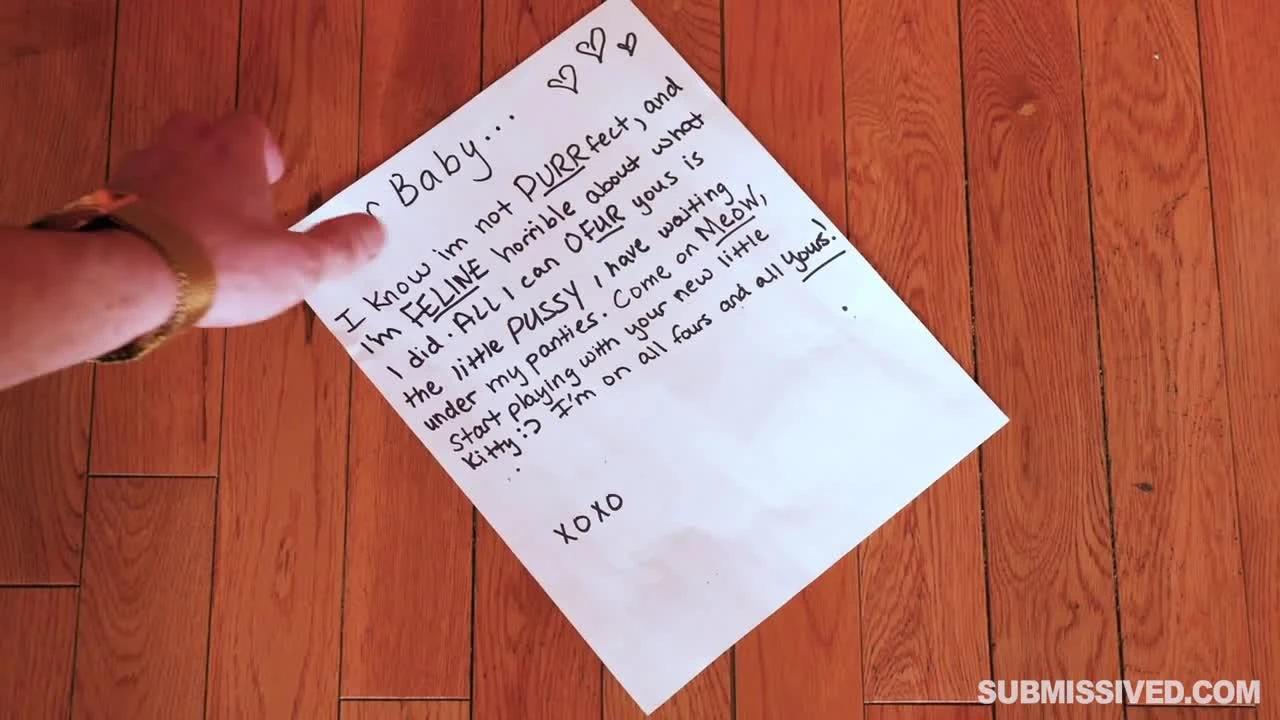 r Baby...
I know im not PURRfect, and
I'm FELINE horrible about what
I did. ALL I can OFUR yous is
the little PUSSY I have waiting
under my panties. Come on MEOW,
start playing with your new little
Kitty:) I'm on all fours and all yours!
XOXO
SUBMISSIVED.COM